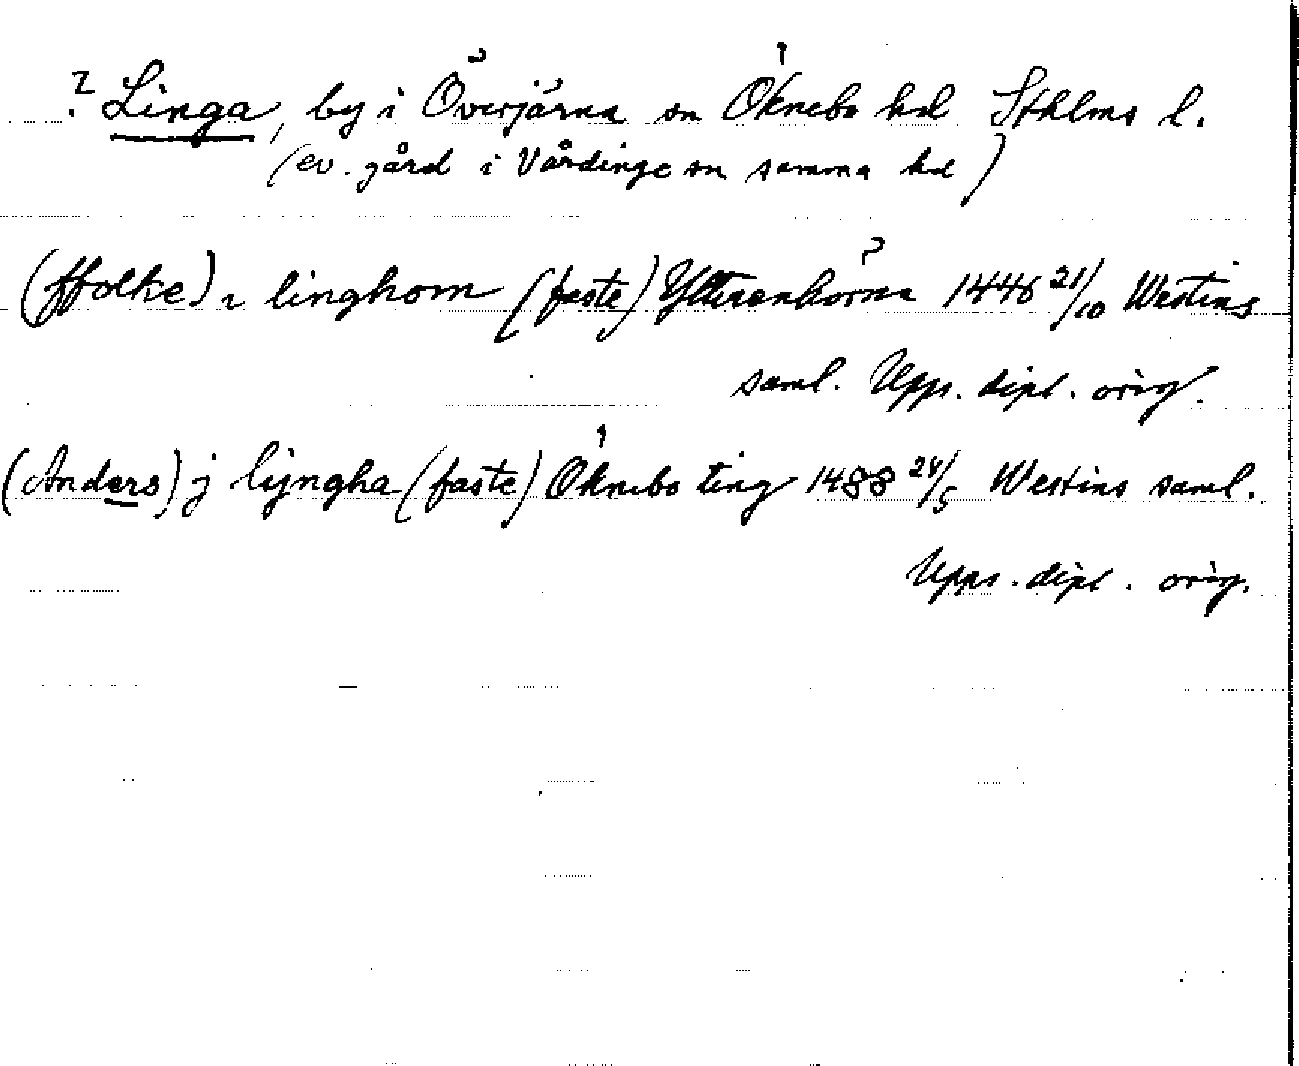 ? Linga, by i Överjärna sn Öknebo hd Sthlms l.
(ev. gård i Vårdinge sn samma hd)
(ffolke) i linghom (faste) Ytterenhörna 1446 21/10 Westins
saml. Upps. dipl. orig.
(Anders) j lijngha (faste) Öknebo ting 1488 24/5 Westins saml.
Upps. dipl. orig.